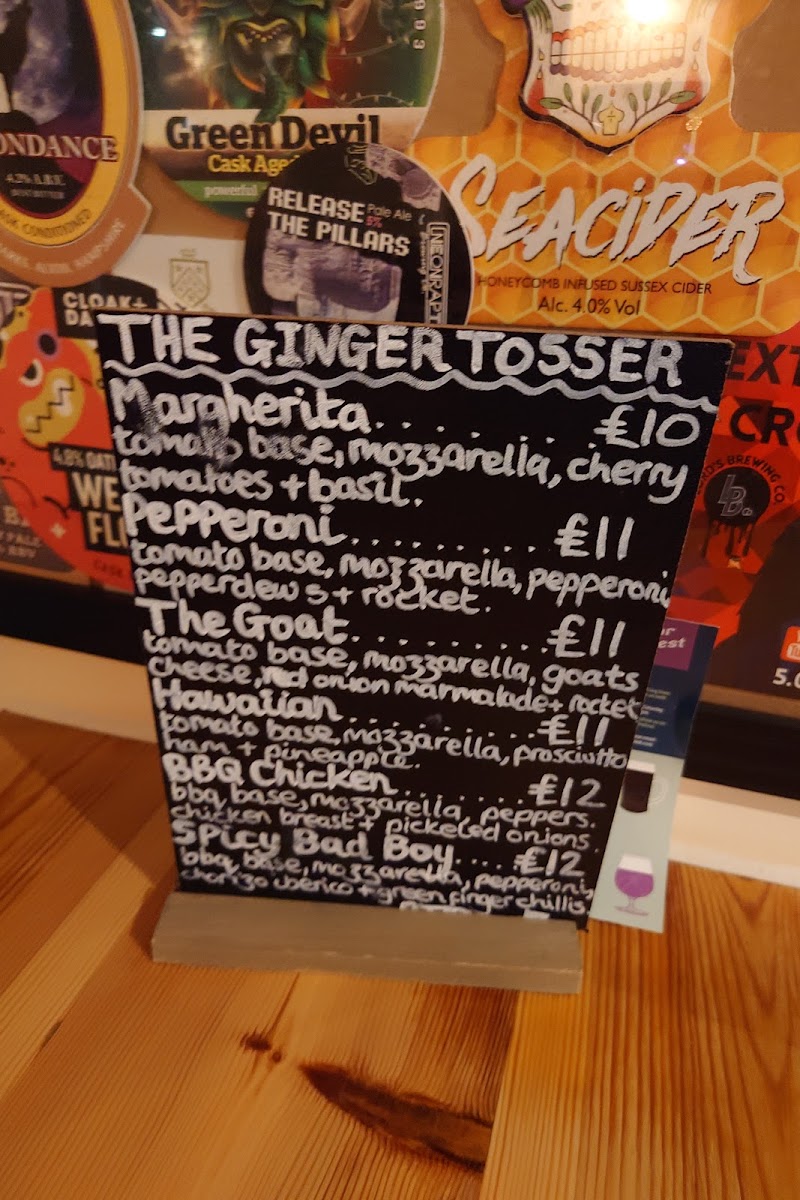 ONDANCE
4.2% A.B.V.
Green Devil
Cask Aged
powerful
RELEASE
THE PILLARS
Pale Ale
5%
NEONRAPT
SEACIDER
HONEYCOMB INFUSED SUSSEX CIDER
Alc. 4.0% Vol
CLOAK+
DA
4.8% OATI
WE
FLI
EXT
CRO
BREWING CO.
5.0
THE GINGER TOSSER
Margherita........£10
tomato base, mozzarella, cherry
tomatoes + basil.
Pepperoni.........£11
tomato base, mozzarella, pepperoni,
pepperdew s + rocket.
The Goat.........£11
tomato base, mozzarella, goats
cheese, red onion marmalade + rocket
Hawaiian.........£11
tomato base, mozzarella, prosciutto
ham + pineapple.
BBQ Chicken.......£12
bbq base, mozzarella, peppers.
chicken breast + pickeled onions.
Spicy Bad Boy.....£12
bbq base, mozzarella, pepperoni,
chorizo iberico + green finger chillis.